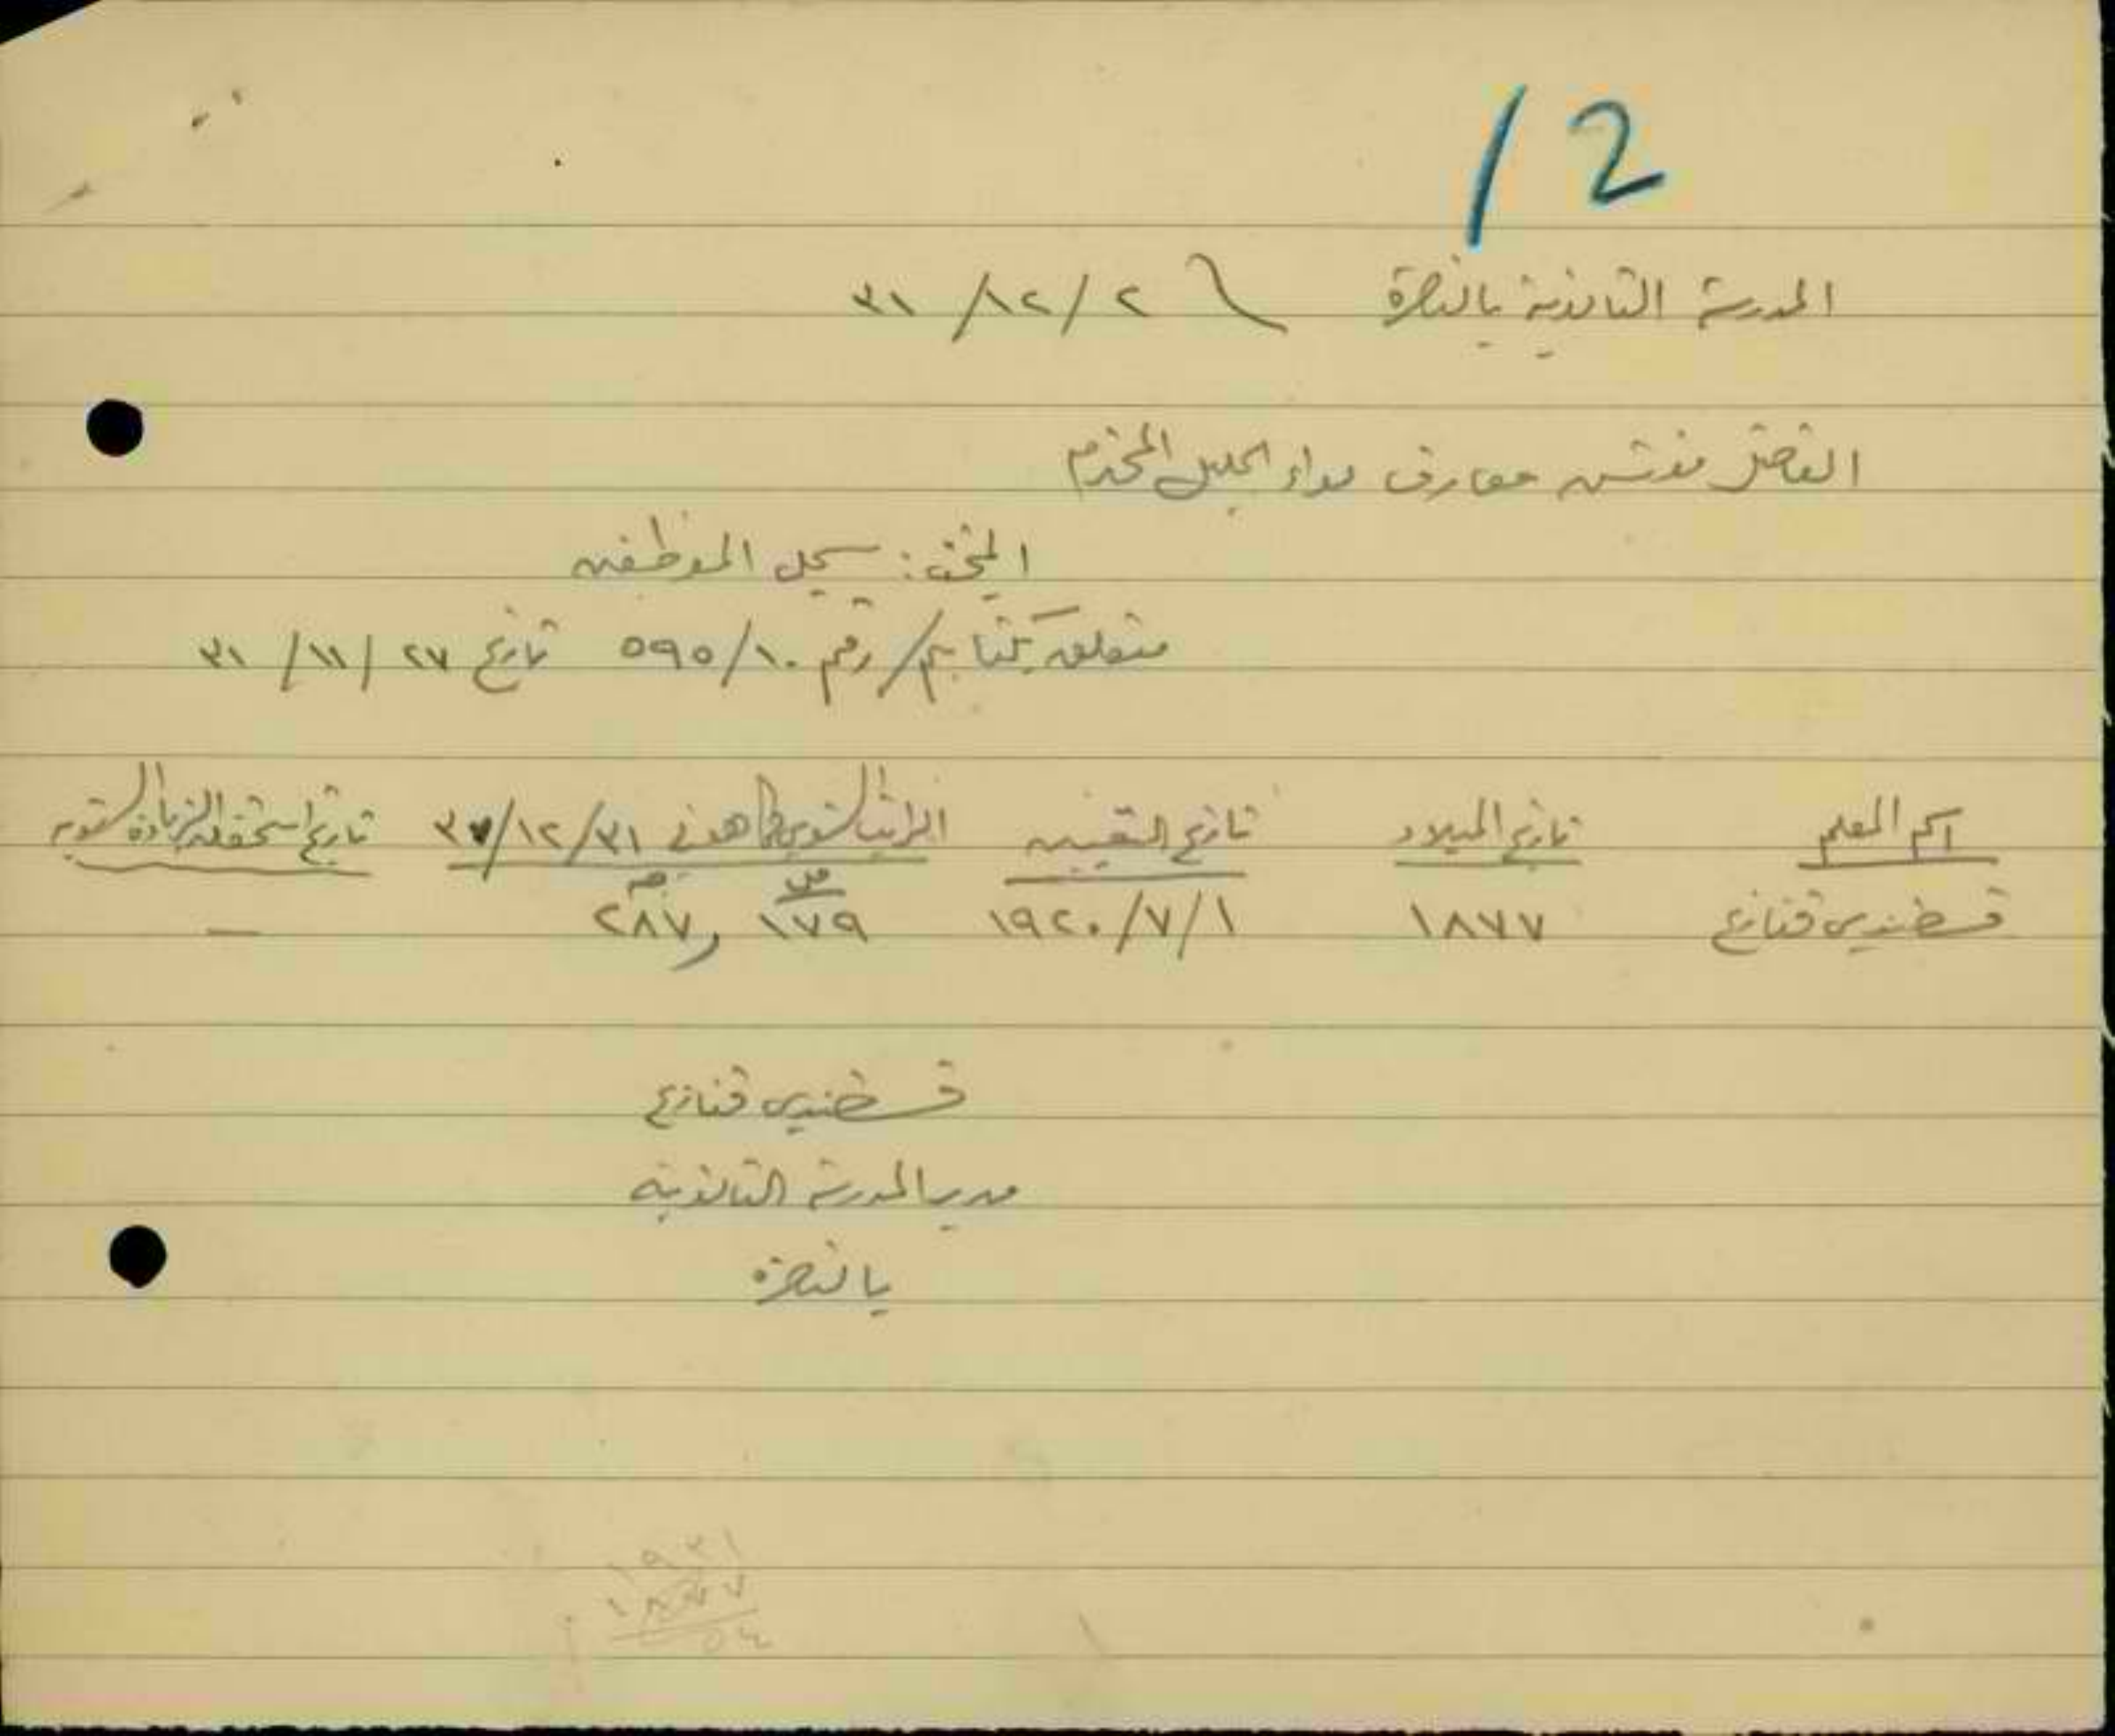 12
المدرسة الثانوية بالناصرة في ٢/١٢/٣١
الفاضل مفتش معارف لواء الجليل المحترم
المبحث: سجل الموظفين
متعلق بكتابكم رقم ٥٩٥/١٠ تاريخ ٢٧/١١/٣١
اسم المعلم تاريخ الميلاد تاريخ التعيين الراتب السنوي كما هو في ٣١/١٢/٣٧ تاريخ استحقاق الزيادة السنوية
مل جـ
قسطندي قنازع ١٨٧٧ ١/٧/١٩٢٠ ١٧٩ ر٢٨٧ —
قسطندي قنازع
مدير المدرسة الثانوية
بالناصرة
١٩٣١
١٨٧٧
٥٤